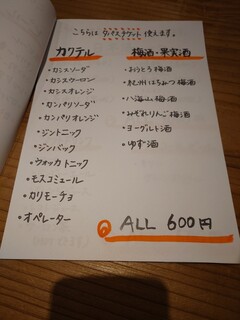 こちらは タパスチケット 使えます。
カクテル
・カシスソーダ
・カシスウーロン
・カシスオレンジ
・カンパリソーダ
・カンパリオレンジ
・ジントニック
・ジンバック
・ウォッカトニック
・モスコミュール
・カリモーチョ
・オペレーター
梅酒・果実酒
・おうとう梅酒
・紀州はちみつ梅酒
・八海山梅酒
・みぞれりんご梅酒
・ヨーグルト酒
・ゆず酒
ALL 600円